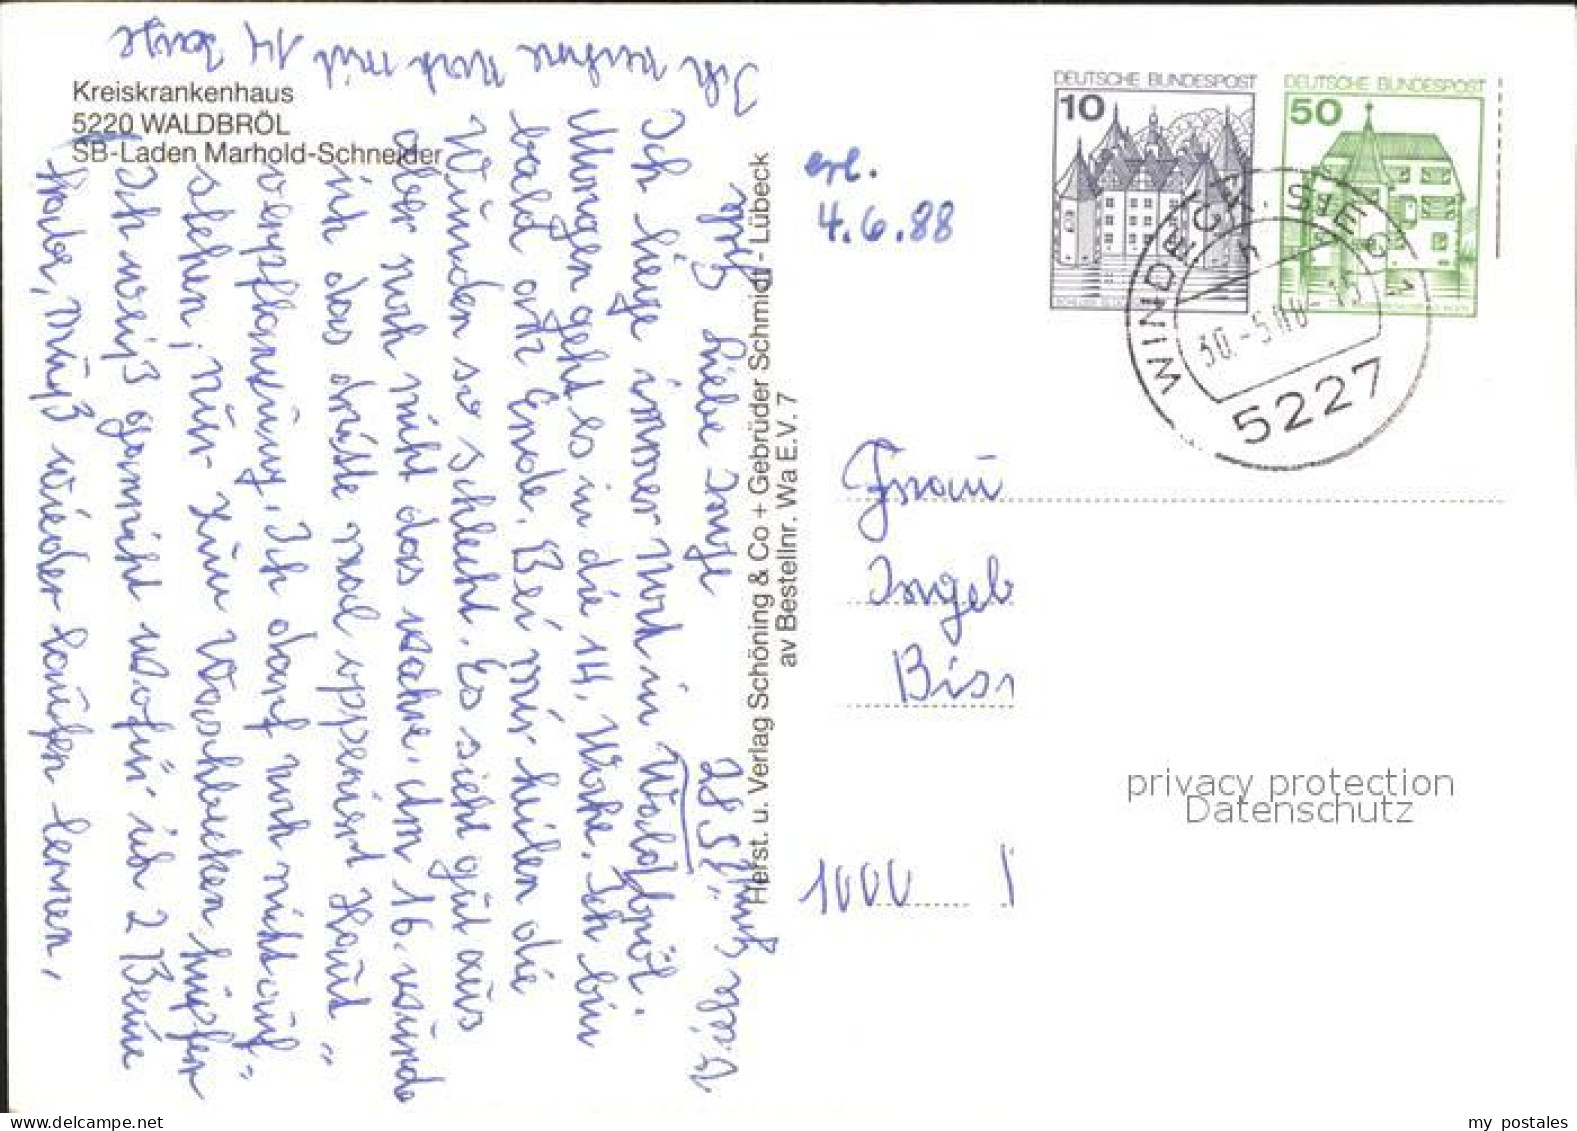 Kreiskrankenhaus
5220 WALDBRÖL
SB-Laden Marhold-Schneider
Herst. u. Verlag Schöning & Co + Gebrüder Schmidt - Lübeck
av Bestellnr. Wa E.V. 7
DEUTSCHE BUNDESPOST
10
DEUTSCHE BUNDESPOST
50
WINDECK, SIEG 1
30.-5.
5227
erl.
4.6.88
Frau
Ingeb
Biss
1000
28.5.88
Liebe Inge
Ich liege immer noch in Waldbröl.
Morgen geht es in die 14. Woche. Ich bin
bald am Ende. Bei mir heilen die
Wunden so schlecht. Es sieht gut aus
aber noch nicht das wahre. Am 16. wurde
ich das dritte mal opperiert Haut-
verpflanzung. Ich darf noch nicht auf-
stehen, nur zum Waschbecken hüpfen
Ich weiß garnicht wofür ich 2 Beine
habe, muß wieder laufen lernen,
Ich rechne noch mit 14 Tage